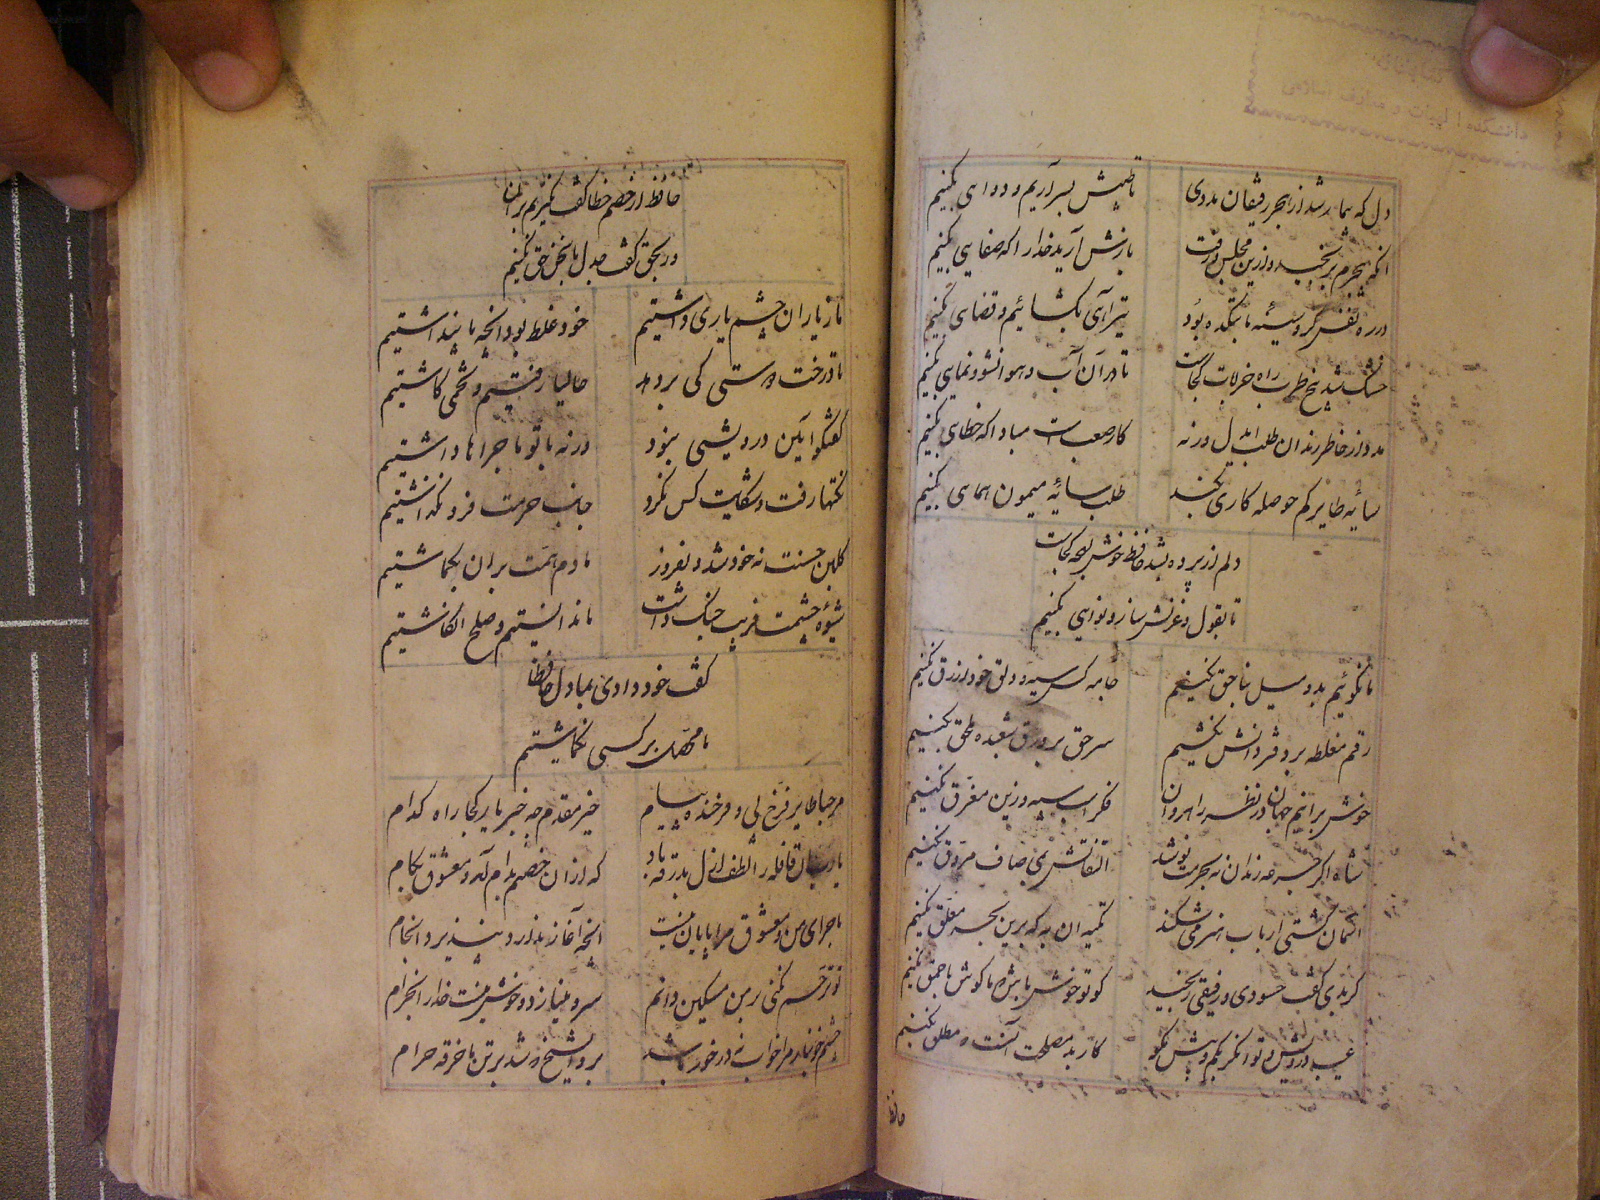 دل که بیمار شد از هجر رفیقان مددی تا طبیبش بسر آریم و دوایی بکنیم
آنکه بی جرم برنجید و ازین مجلس رفت بازش آرید خدا را که صفایی بکنیم
در ره نفس کزو سینه ما بتکده بود تیر آهی بکشائیم و قضای بکنیم
خشک شد بیخ طرب راه خرابات کجاست تا در آن آب و هوا نشو و نمایی بکنیم
مدد از خاطر رندان طلب ایدل ورنه کار صعبست مبادا که خطای بکنیم
سایه طایر کم حوصله کاری نکند طلب سایه میمون همایی بکنیم
دلم از پرده بشد حافظ خوش لهجه کجاست
تا بقول و غزلش ساز و نوایی بکنیم
ما نگوئیم بد و میل بناحق نکنیم جامه کس سیه و دلق خود ازرق نکنیم
رقم مغلطه بر دفتر دانش نکشیم سر حق بر ورق شعبده ملحق نکنیم
خوش برانیم جهان در نظر راهروان فکر اسب سیه و زین مغرق نکنیم
شاه اگر جرعه رندان نه بحرمت نوشد التفاتش بمی صاف مروق نکنیم
آسمان کشتی ارباب هنر می شکند تکیه آن به که برین بحر معلق نکنیم
گر بدی گفت حسودی و رفیقی رنجید گو تو خوش باش که ما گوش باحمق نکنیم
عیب درویش و توانگر بکم و بیش نکو کار بد مصلحت آنست که مطلق نکنیم
حافظ
حافظ ار خصم خطا گفت نگیریم بر آن
ور بحق گفت جدل با سخن حق نکنیم
ما ز یاران چشم یاری داشتیم خود غلط بود آنچه ما پنداشتیم
تا درخت دوستی کی بر دهد حالیا رفتیم و تخمی کاشتیم
گفتگو آیین درویشی نبود ورنه با تو ماجراها داشتیم
نکتها رفت و شکایت کس نکرد جانب حرمت فرو نگذاشتیم
گلبن حسنت نه خود شد دلفروز ما دم همت بر آن بگماشتیم
شیوه چشمت فریب جنگ داشت ما ندانستیم و صلح انگاشتیم
گفت خود دادی بما دل حافظا
ما محصل بر کسی نگماشتیم
مرحبا طایر فرخ پی و فرخنده پیام خیر مقدم چه خبر یار کجا راه کدام
یا رب آن قافله را لطف ازل بدرقه باد که از آن خصم بدام آمد و معشوق بکام
ماجرای من و معشوق مرا پایان نیست آنچه آغاز ندارد نپذیرد انجام
تو ترحم نکنی بر من مسکین دانم
چشم خونبار مرا خواب نه در خور باشد